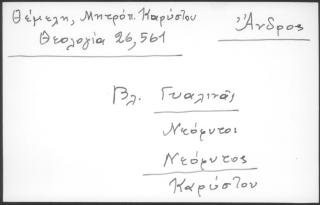 Θέμελη, Μητρόπ. Καρύστου
Θεολογία 26,561
Ἄνδρος
Βλ. Γυαλινᾶς
Νεόφυτοι
Νεόφυτος
Καρύστου